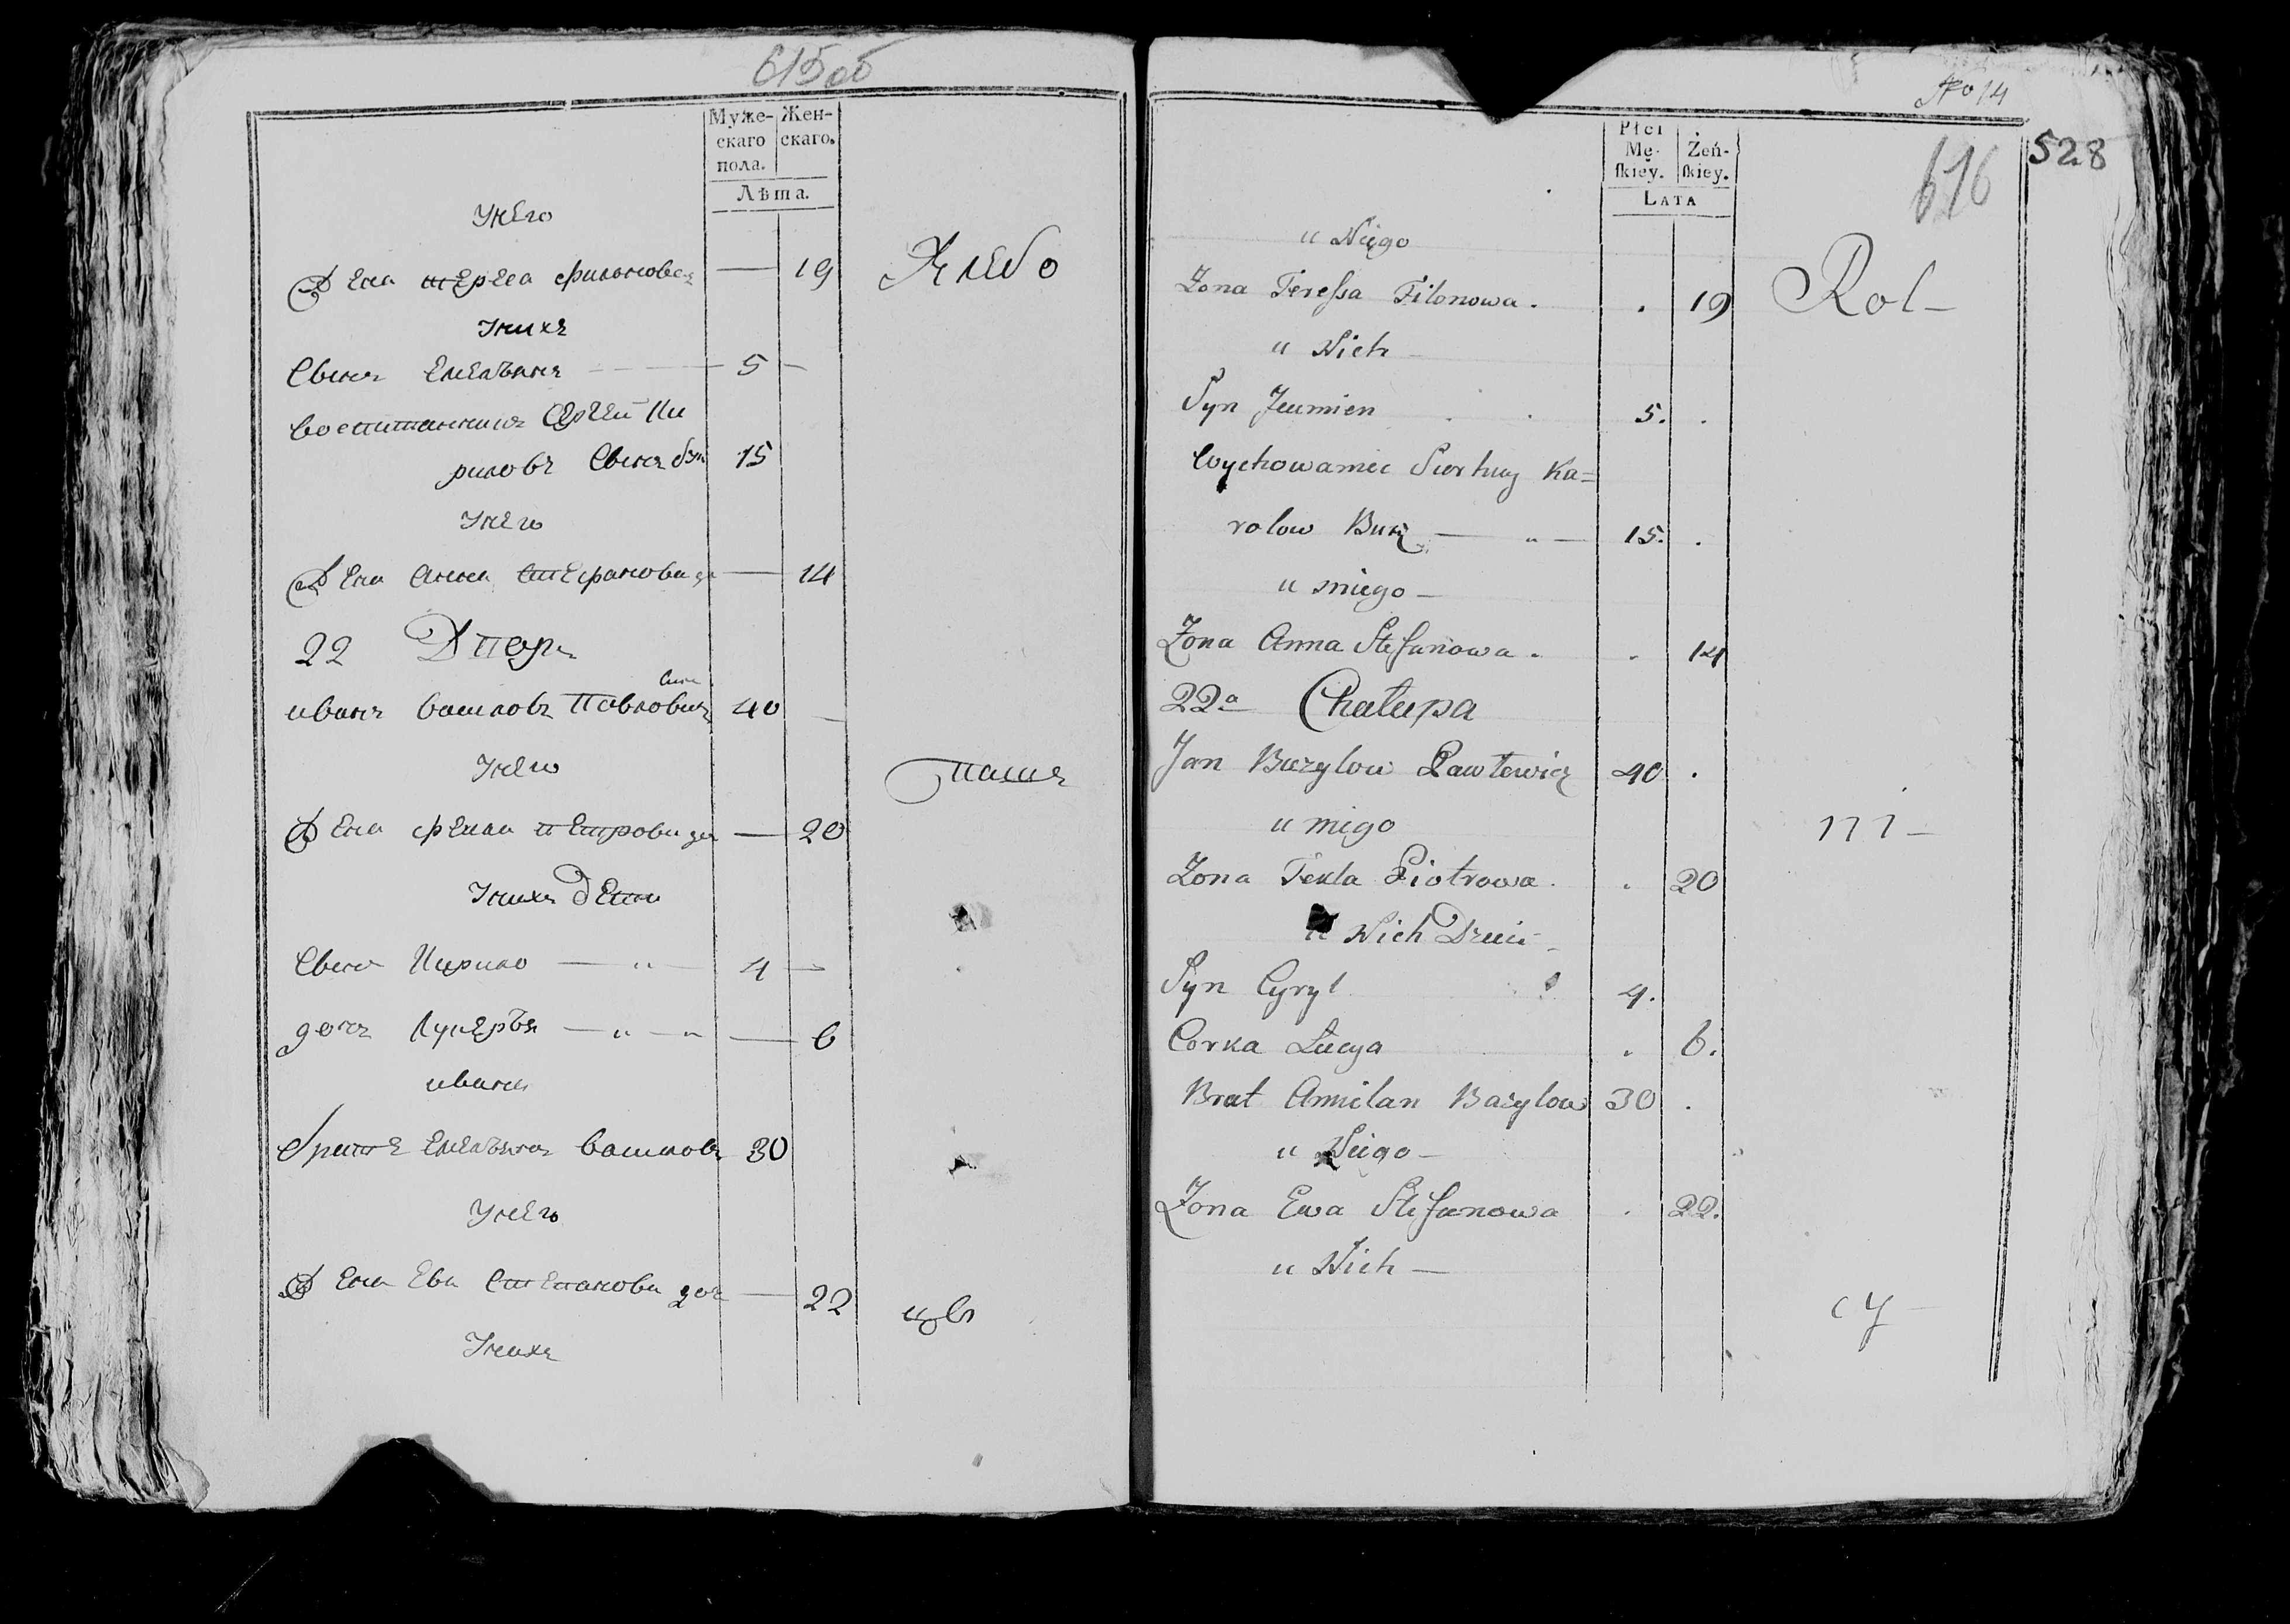 615об
Муже-
скаго
пола.
Жен-
скаго.
Лѣта.
У него
Жена Тереса Филонова — 19
Хлебо
У нихъ
Сынъ Емельянъ — 5 —
воспитанникъ Сергей Ки
риловъ Сынъ 15
У него
Жена Анна Стефанова — 14
22 Дворъ
сынъ
иванъ василовъ Павловичъ 40 —
У него
паше
Жена Фекла Петрова — 20
У нихъ дети
Сынъ Кирило — " — 4 —
дочь Лукеръя — " — " — 6
ивана
братъ Емельянъ василовъ 30
У него
Жена Ева Степанова доч — 22
цы
У нихъ
№ 14
528
616
Płci
Mę-
ſkiey.
Żeń-
ſkiey.
LATA
u Niego
Zona Teressa Filonowa . . 19
Rol-
u Nich -
Syn Jeumien . . 5. .
Wychowaniec Sierhiey Ka=
rolow Buk — " — 15. .
u niego -
Zona Anna Stefanowa . . 14
22a Chałupa
Jan Bazylow Pawłowicz 40 .
u niego
ni-
Zona Tekla Piotrowa . . 20
u Nich Dzieci -
Syn Cyryl 4.
Corka Łucya . 6.
Brat Amilan Bazylow 30 .
u Niego -
Zona Ewa Stefanowa . 22.
u Nich —
cy -